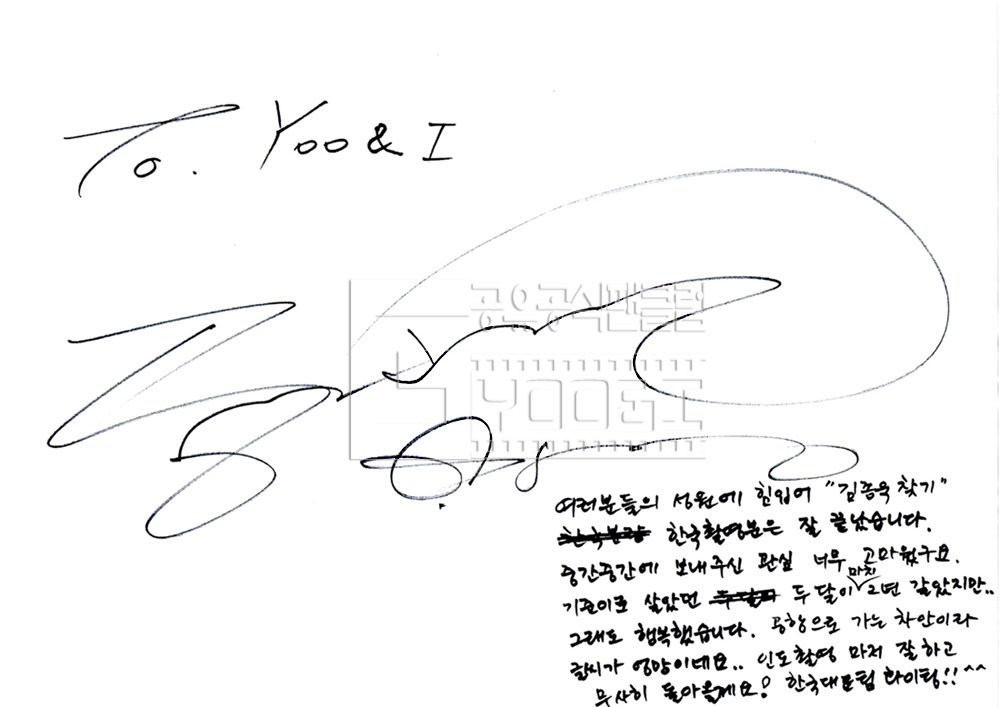 To. Yoo & I
공유공식팬클럽
YOO&I
여러분들의 성원에 힘입어 "김종욱 찾기"
한국촬영분은 잘 끝났습니다.
중간중간에 보내주신 관심 너무 고마웠구요.
기준이로 살았던 두달이 마치 2년 같았지만..
그래도 행복했습니다. 공항으로 가는 차안이라
글씨가 엉망이네요.. 인도촬영 마저 잘 하고
무사히 돌아올게요! 한국대표팀 화이팅!! ^^